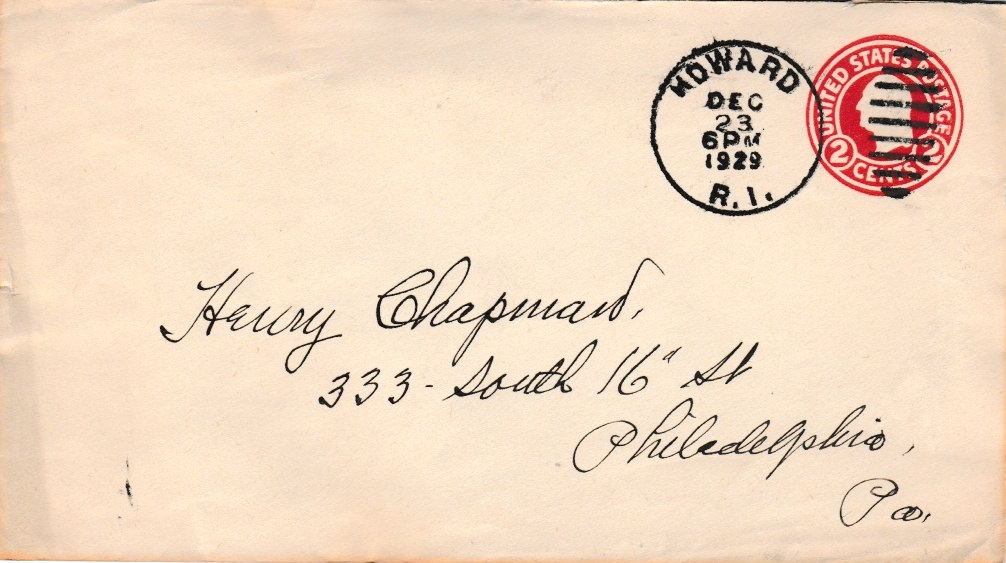 HOWARD
DEC
23
6 PM
1929
R.I.
UNITED STATES POSTAGE
2 CENTS 2
Henry Chapman,
333 - South 16" St
Philadelphia,
Pa.